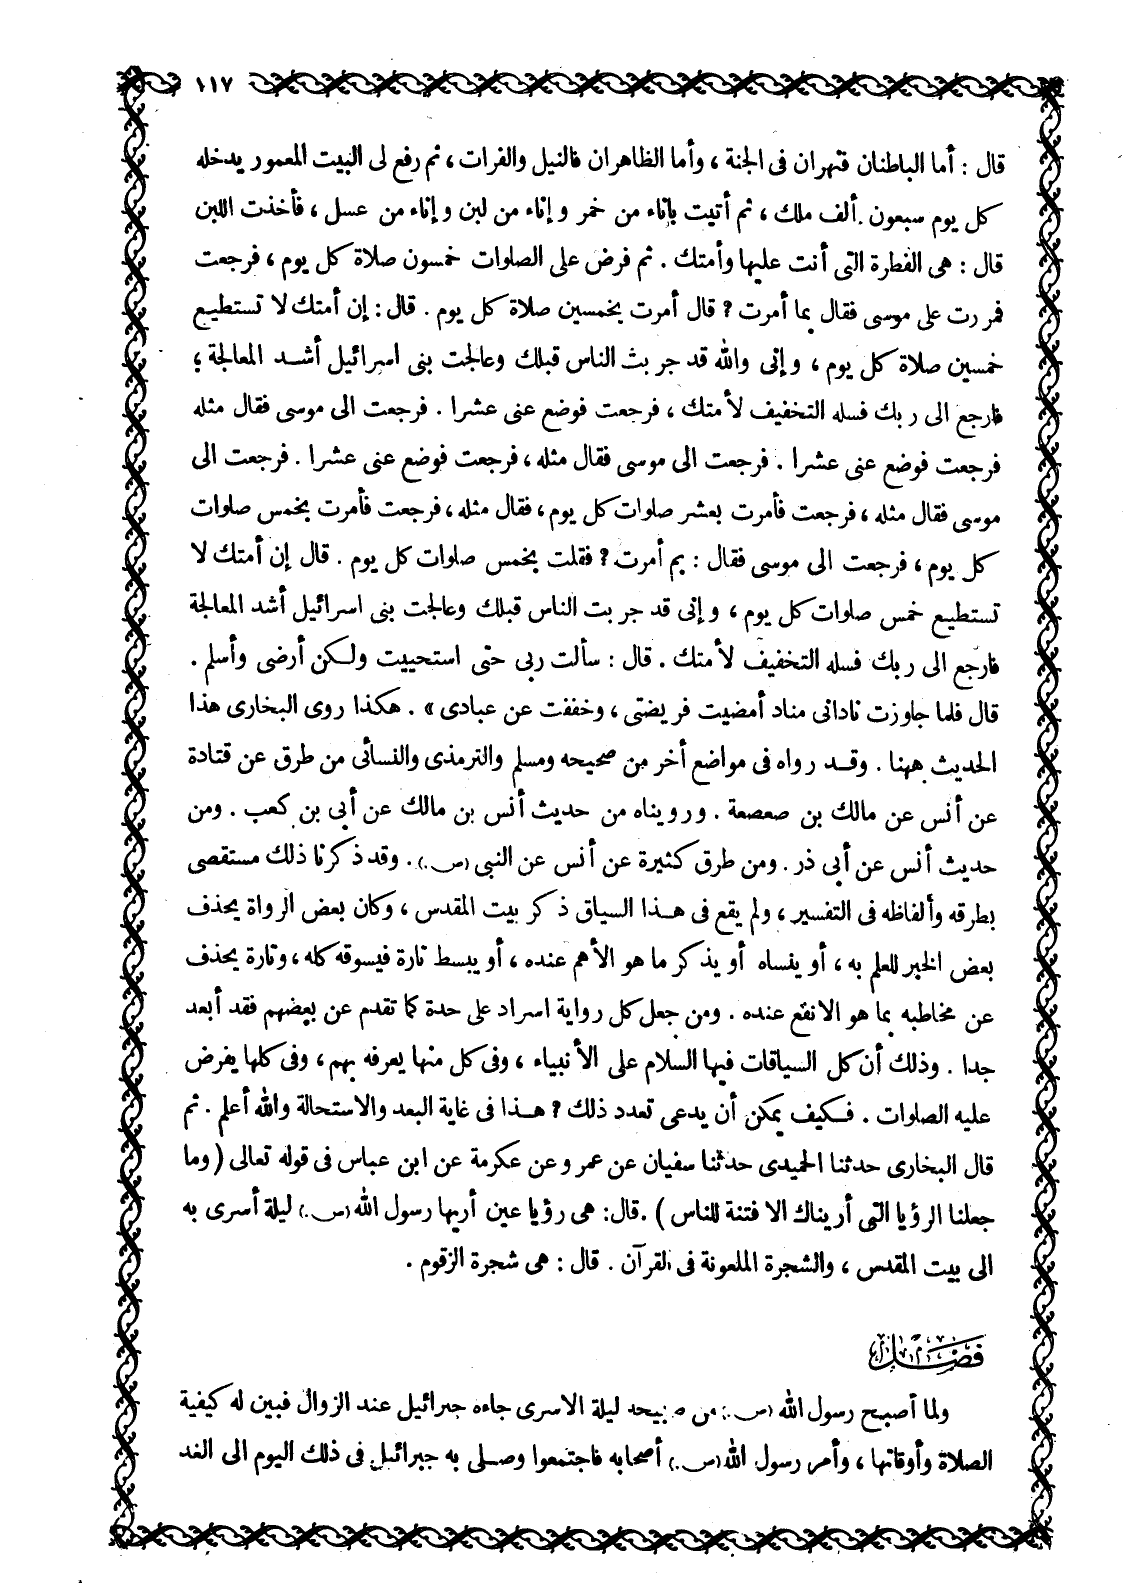 ١١٧
قال : أما الباطنان فنهران فى الجنة ، وأما الظاهران فالنيل والفرات ، ثم رفع لى البيت المعمور يدخله
كل يوم سبعون ألف ملك ، ثم أتيت بإناء من خمر و إناء من لبن و إناء من عسل ، فأخذت اللبن
قال : هى الفطرة التى أنت عليها وأمتك . ثم فرض على الصلوات خمسون صلاة كل يوم ، فرجعت
فمررت على موسى فقال بما أمرت ? قال أمرت بخمسين صلاة كل يوم . قال : إن أمتك لا تستطيع
خمسين صلاة كل يوم ، و إنى والله قد جربت الناس قبلك وعالجت بنى اسرائيل أشد المعالجة ؛
فارجع الى ربك فسله التخفيف لأمتك ، فرجعت فوضع عنى عشرا . فرجعت الى موسى فقال مثله
فرجعت فوضع عنى عشرا . فرجعت الى موسى فقال مثله ، فرجعت فوضع عنى عشرا . فرجعت الى
موسى فقال مثله ، فرجعت فأمرت بعشر صلوات كل يوم ، فقال مثله ، فرجعت فأمرت بخمس صلوات
كل يوم ، فرجعت الى موسى فقال : بم أمرت ? فقلت بخمس صلوات كل يوم . قال إن أمتك لا
تستطيع خمس صلوات كل يوم ، و إنى قد جربت الناس قبلك وعالجت بنى اسرائيل أشد المعالجة
فارجع الى ربك فسله التخفيف لأمتك . قال : سألت ربى حتى استحييت ولكن أرضى وأسلم .
قال فلما جاوزت نادانى مناد أمضيت فريضتى ، وخففت عن عبادى » . هكذا روى البخارى هذا
الحديث ههنا . وقد رواه فى مواضع أخر من صحيحه ومسلم والترمذى والنسائى من طرق عن قتادة
عن أنس عن مالك بن صعصعة . ورويناه من حديث أنس بن مالك عن أبى بن كعب . ومن
حديث أنس عن أبى ذر . ومن طرق كثيرة عن أنس عن النبى (ص.) . وقد ذكرنا ذلك مستقصى
بطرقه وألفاظه فى التفسير ، ولم يقع فى هذا السياق ذكر بيت المقدس ، وكان بعض الرواة يحذف
بعض الخبر للعلم به ، أو ينساه أو يذكر ما هو الأهم عنده ، أو يبسط تارة فيسوقه كله ، وتارة يحذف
عن مخاطبه بما هو الانفع عنده . ومن جعل كل رواية اسراء على حدة كما تقدم عن بعضهم فقد أبعد
جدا . وذلك أن كل السياقات فيها السلام على الأنبياء ، وفى كل منها يعرفه بهم ، وفى كلها يفرض
عليه الصلوات . فكيف يمكن أن يدعى تعدد ذلك ? هذا فى غاية البعد والاستحالة والله أعلم . ثم
قال البخارى حدثنا الحميدى حدثنا سفيان عن عمر و عن عكرمة عن ابن عباس فى قوله تعالى ( وما
جعلنا الرؤيا التى أريناك الا فتنة للناس ) .قال: هى رؤيا عين أريها رسول الله (ص.) ليلة أسرى به
الى بيت المقدس ، والشجرة الملعونة فى القرآن . قال : هى شجرة الزقوم .
فصل
ولما أصبح رسول الله (ص.) من صبيحة ليلة الاسرى جاءه جبرائيل عند الزوال فبين له كيفية
الصلاة وأوقاتها ، وأمر رسول الله (ص.) أصحابه فاجتمعوا وصلى به جبرائيل فى ذلك اليوم الى الغد